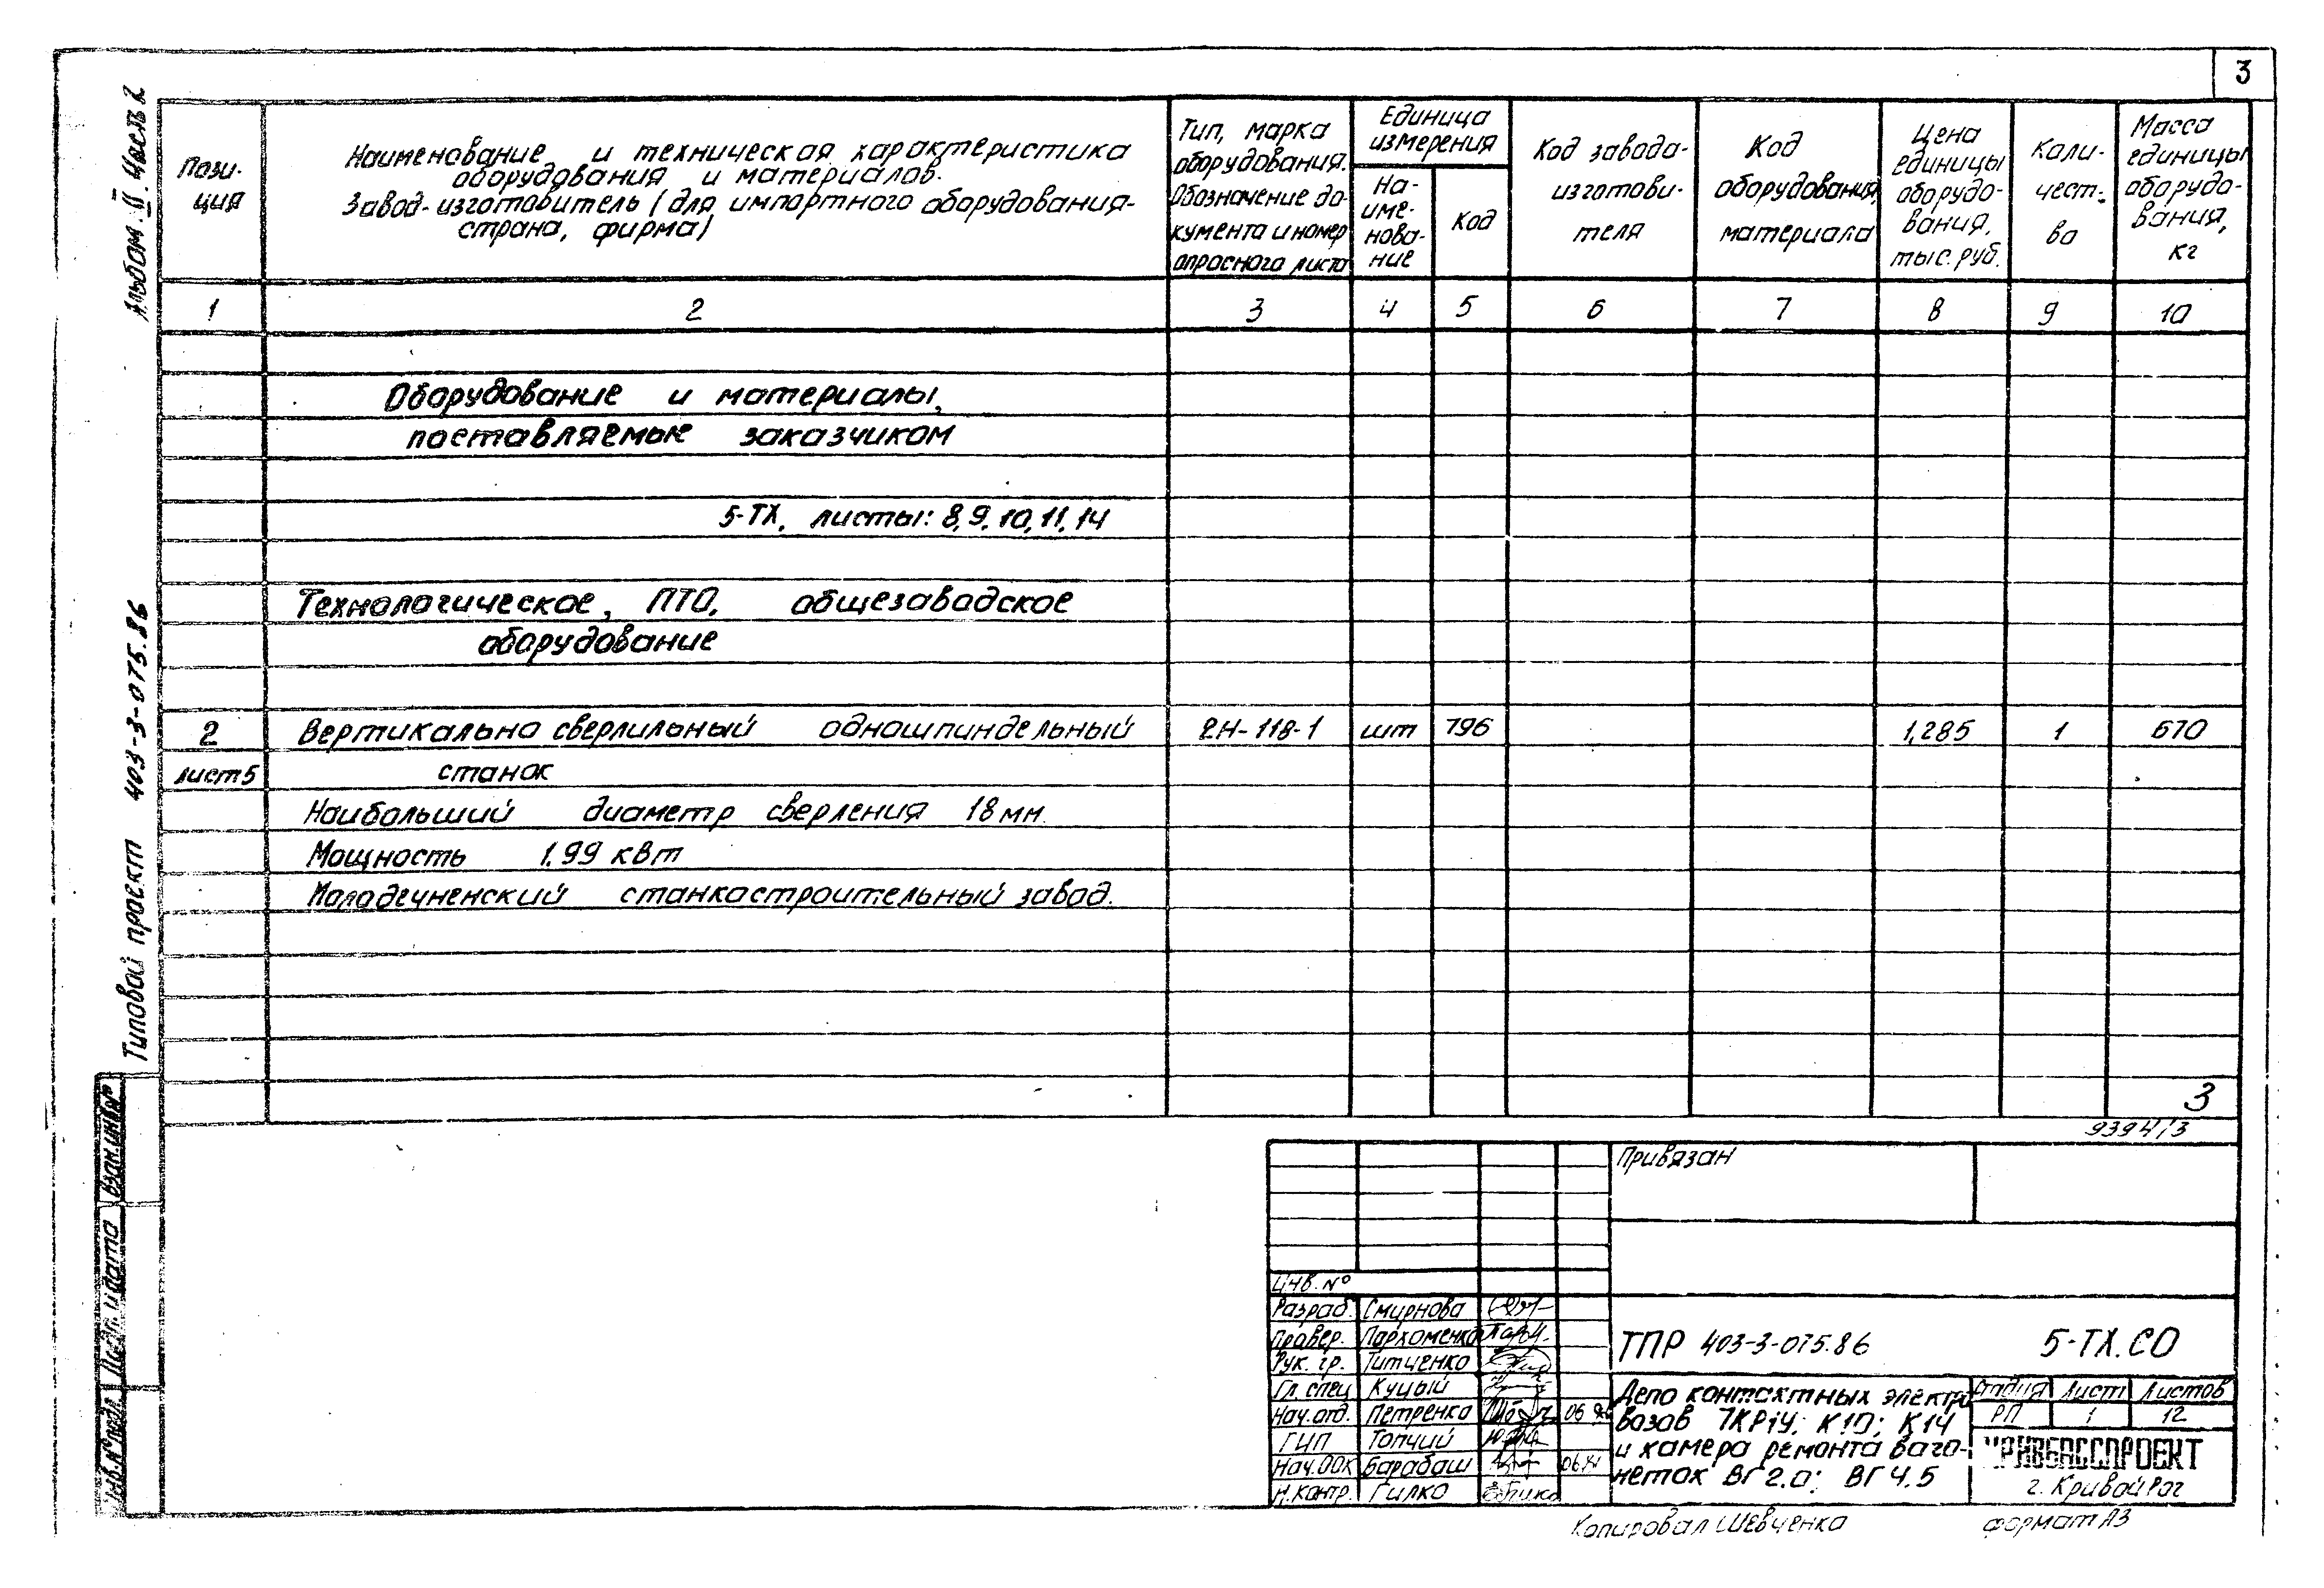 3
Альбом II. Часть 2
Типовой проект 403-3-075.86
Пози-
ция
Наименование и техническая характеристика
оборудования и материалов.
Завод-изготовитель (для импортного оборудования-
страна, фирма)
Тип, марка
оборудования.
Обозначение до-
кумента и номер
опросного листа
Единица
измерения
На-
име-
нова-
ние
Код
Код завода-
изготови-
теля
Код
оборудования,
материала
Цена
единицы
оборудо-
вания,
тыс. руб.
Коли-
чест-
во
Масса
единицы
оборудо-
вания,
кг
1 2 3 4 5 6 7 8 9 10
Оборудование и материалы,
поставляемые заказчиком
5-ТХ, листы: 8, 9, 10, 11, 14
Технологическое, ПТО, общезаводское
оборудование
2 Вертикально сверлильный одношпиндельный 2Н-118-1 шт 796 1,285 1 670
лист 5 станок
Наибольший диаметр сверления 18 мм.
Мощность 1.99 квт
Молодечненский станкостроительный завод.
3
9394/3
Привязан
Инв. №
Разраб. Смирнова
Провер. Пархоменко
Рук. гр. Титченко
Гл. спец Куцый
Нач. отд. Петренко
ГИП Топчий
Нач. ООК Барабаш
Н. контр. Гилко
ТПР 403-3-075.86 5-ТХ.СО
Депо контактных электро
возов 7КР1У; К10; К14
и камера ремонта ваго-
неток ВГ2.0; ВГ4.5
Стадия Лист Листов
РП 1 12
КРИВБАССПРОЕКТ
г. Кривой Рог
Взам. инв №
Подп. и дата
Инв. № подл.
Копировал Шевченко формат А3